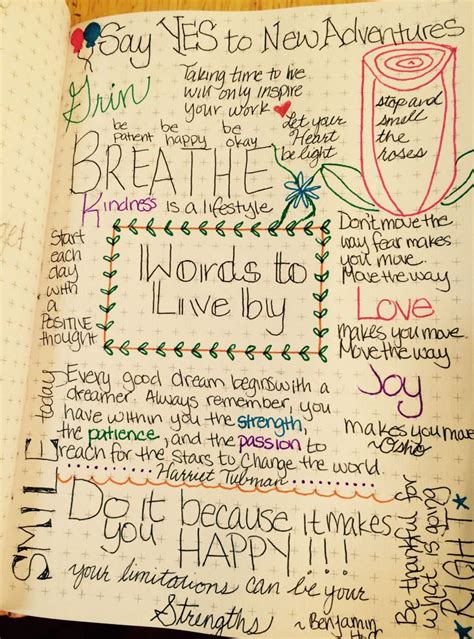 Say YES to New Adventures
Grin
Taking time to live
will only inspire
your work
Let your
Heart
be light
stop and
smell
the
roses
be patient
be happy
be okay
BREATHE
Kindness is a lifestyle
Start
each
day
with
a
POSITIVE
thought
Words to
Live by
Don't move the
way fear makes
you move.
Move the way
Love
makes you move.
Move the way
Joy
makes you move
~Osho
SMILE today
Every good dream begins with a
dreamer. Always remember, you
have within you the strength,
the patience, and the passion to
reach for the stars to change the world.
Harriet Tubman
Do it because it makes
you HAPPY!!!
Be thankful for
what is going
RIGHT
your limitations can be your
Strengths
~ Benjamin